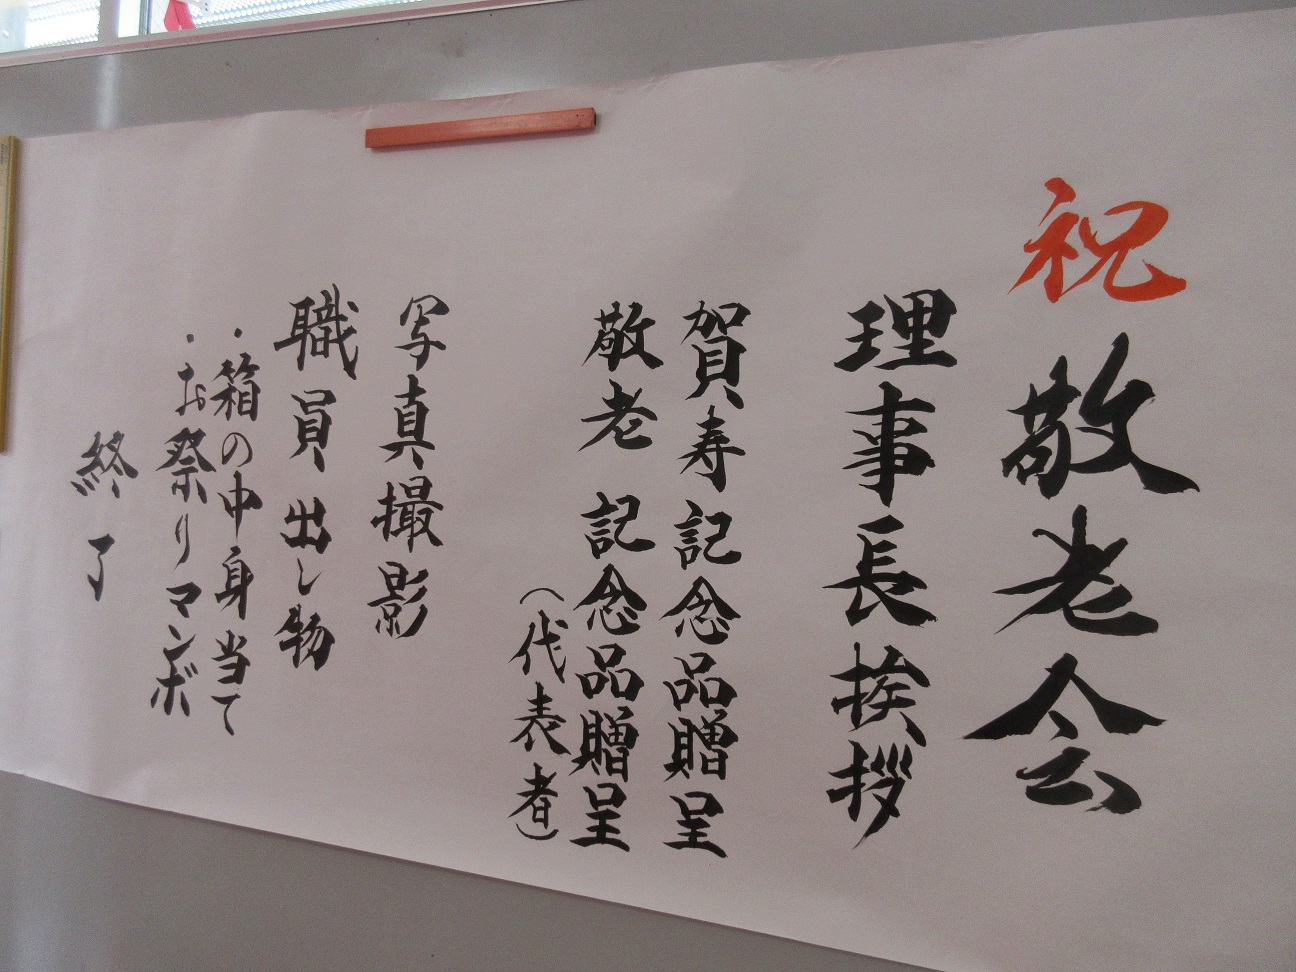 祝敬老会
理事長挨拶
賀寿記念品贈呈
敬老記念品贈呈
（代表者）
写真撮影
職員出し物
・箱の中身当て
・お祭りマンボ
終了